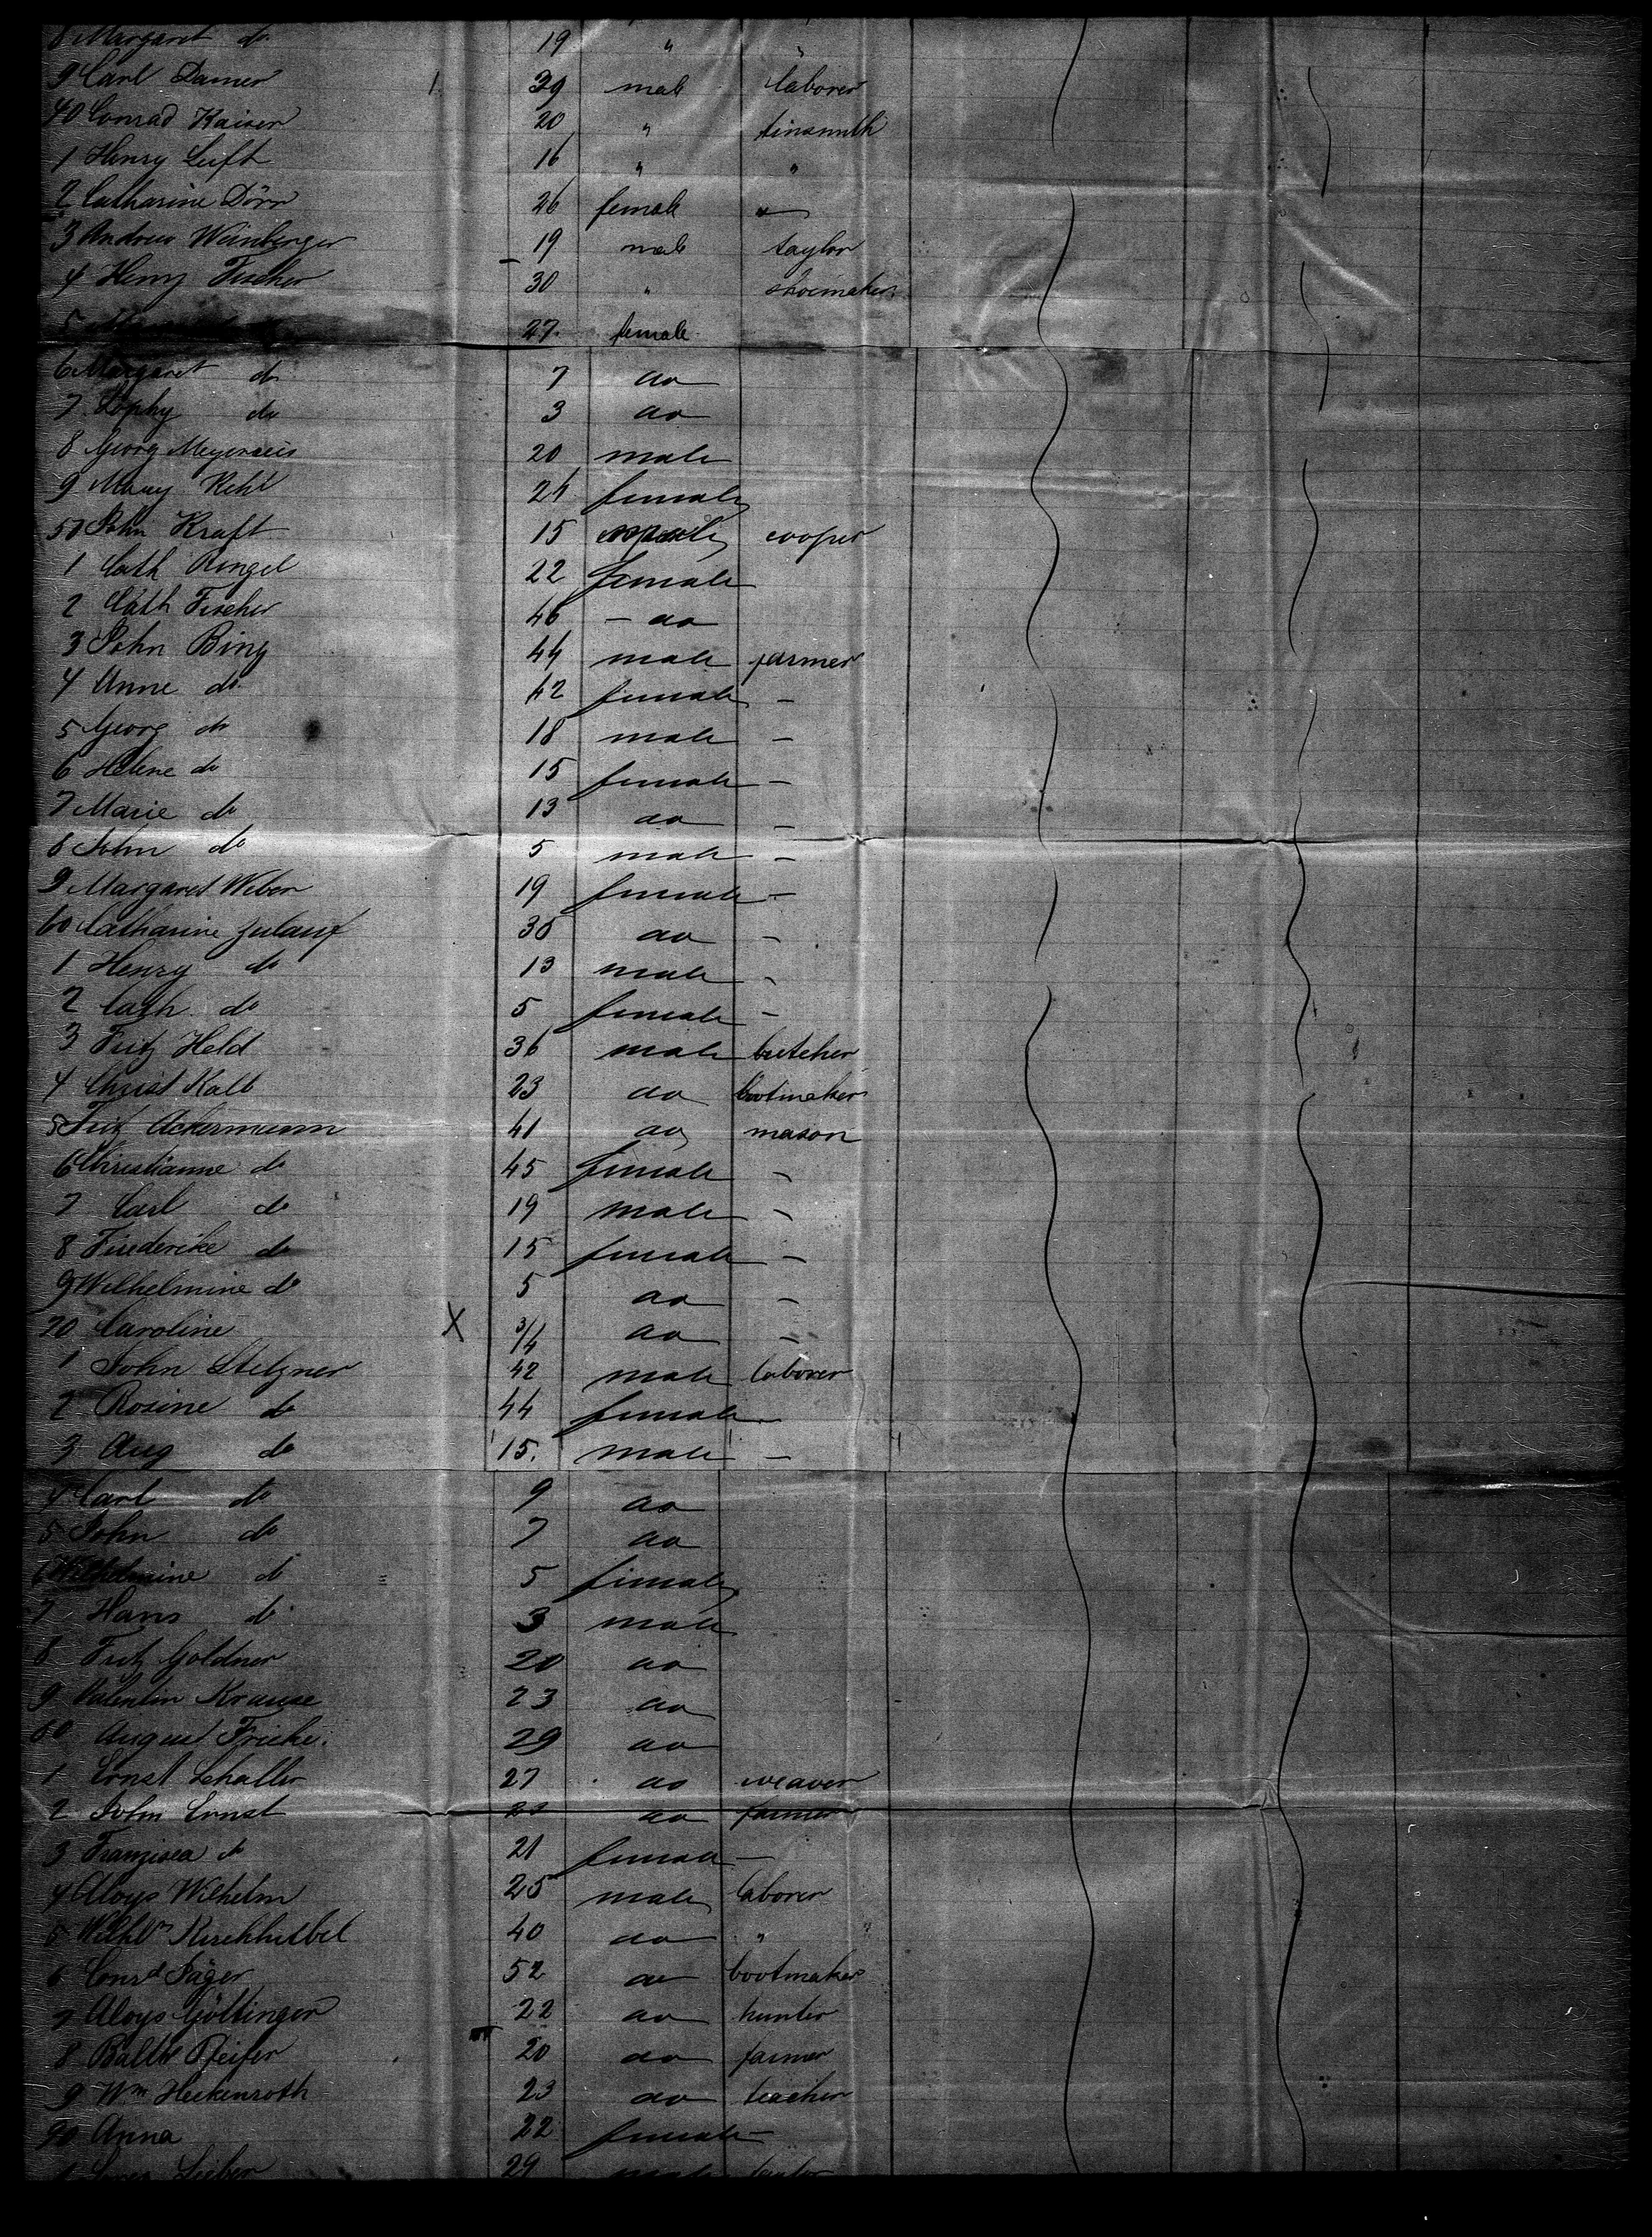 8 Margaret do 19 " "
9 Carl Damer 39 male laborer
40 Conrad Kaiser 20 " tinsmith
1 Henry Luft 16 " "
2 Catharine Dörr 26 female —
3 Andrew Weinberger 19 male taylor
4 Henry Fischer 30 " shoemaker
5 27 female
6 Margaret do 7 do
7 Sophy do 3 do
8 Georg 20 male
9 Mary Kehl 24 female
50 John Kraft 15 male cooper
1 Cath Ringel 22 female
2 Cath Fischer 46 - do
3 John Bing 44 male farmer
4 Anne do 42 female -
5 Georg do 18 male -
6 Helene do 15 female -
7 Marie do 13 do -
8 John do 5 male -
9 Margaret Weber 19 female -
60 Catharine Zulauf 35 do -
1 Henry do 13 male -
2 Cath do 5 female -
3 Fritz Held 36 male butcher
4 Christ Kalb 23 do bootmaker
5 Fritz Ackermann 41 do mason
6 Christianne do 45 female -
7 Carl do 19 male -
8 Friederike do 15 female -
9 Wilhelmine do 5 do -
70 Caroline X 3/4 do -
1 John Stelzner 42 male laborer
2 Rosine do 44 female -
3 Aug do 15. male -
4 Carl do 9 do
5 John do 7 do
6 Wilhelmine do 5 female
7 Hans do 3 male
8 Fritz Goldner 20 do
9 Valentin Krause 23 do
80 August Fricke. 29 do
1 Ernst Schaller 27 do weaver
2 John Ernst do farmer
3 Franzisca do 21 female -
4 Aloys Wilhelm 25 male laborer
5 Wilhm 40 do "
6 Conrd Jäger 52 do bootmaker
7 Aloys Göttinger 22 do hunter
8 Balth Pfeifer 20 do farmer
9 Wm Heckenroth 23 do teacher
90 Anna 22 female -
1 Lieber 29 male taylor